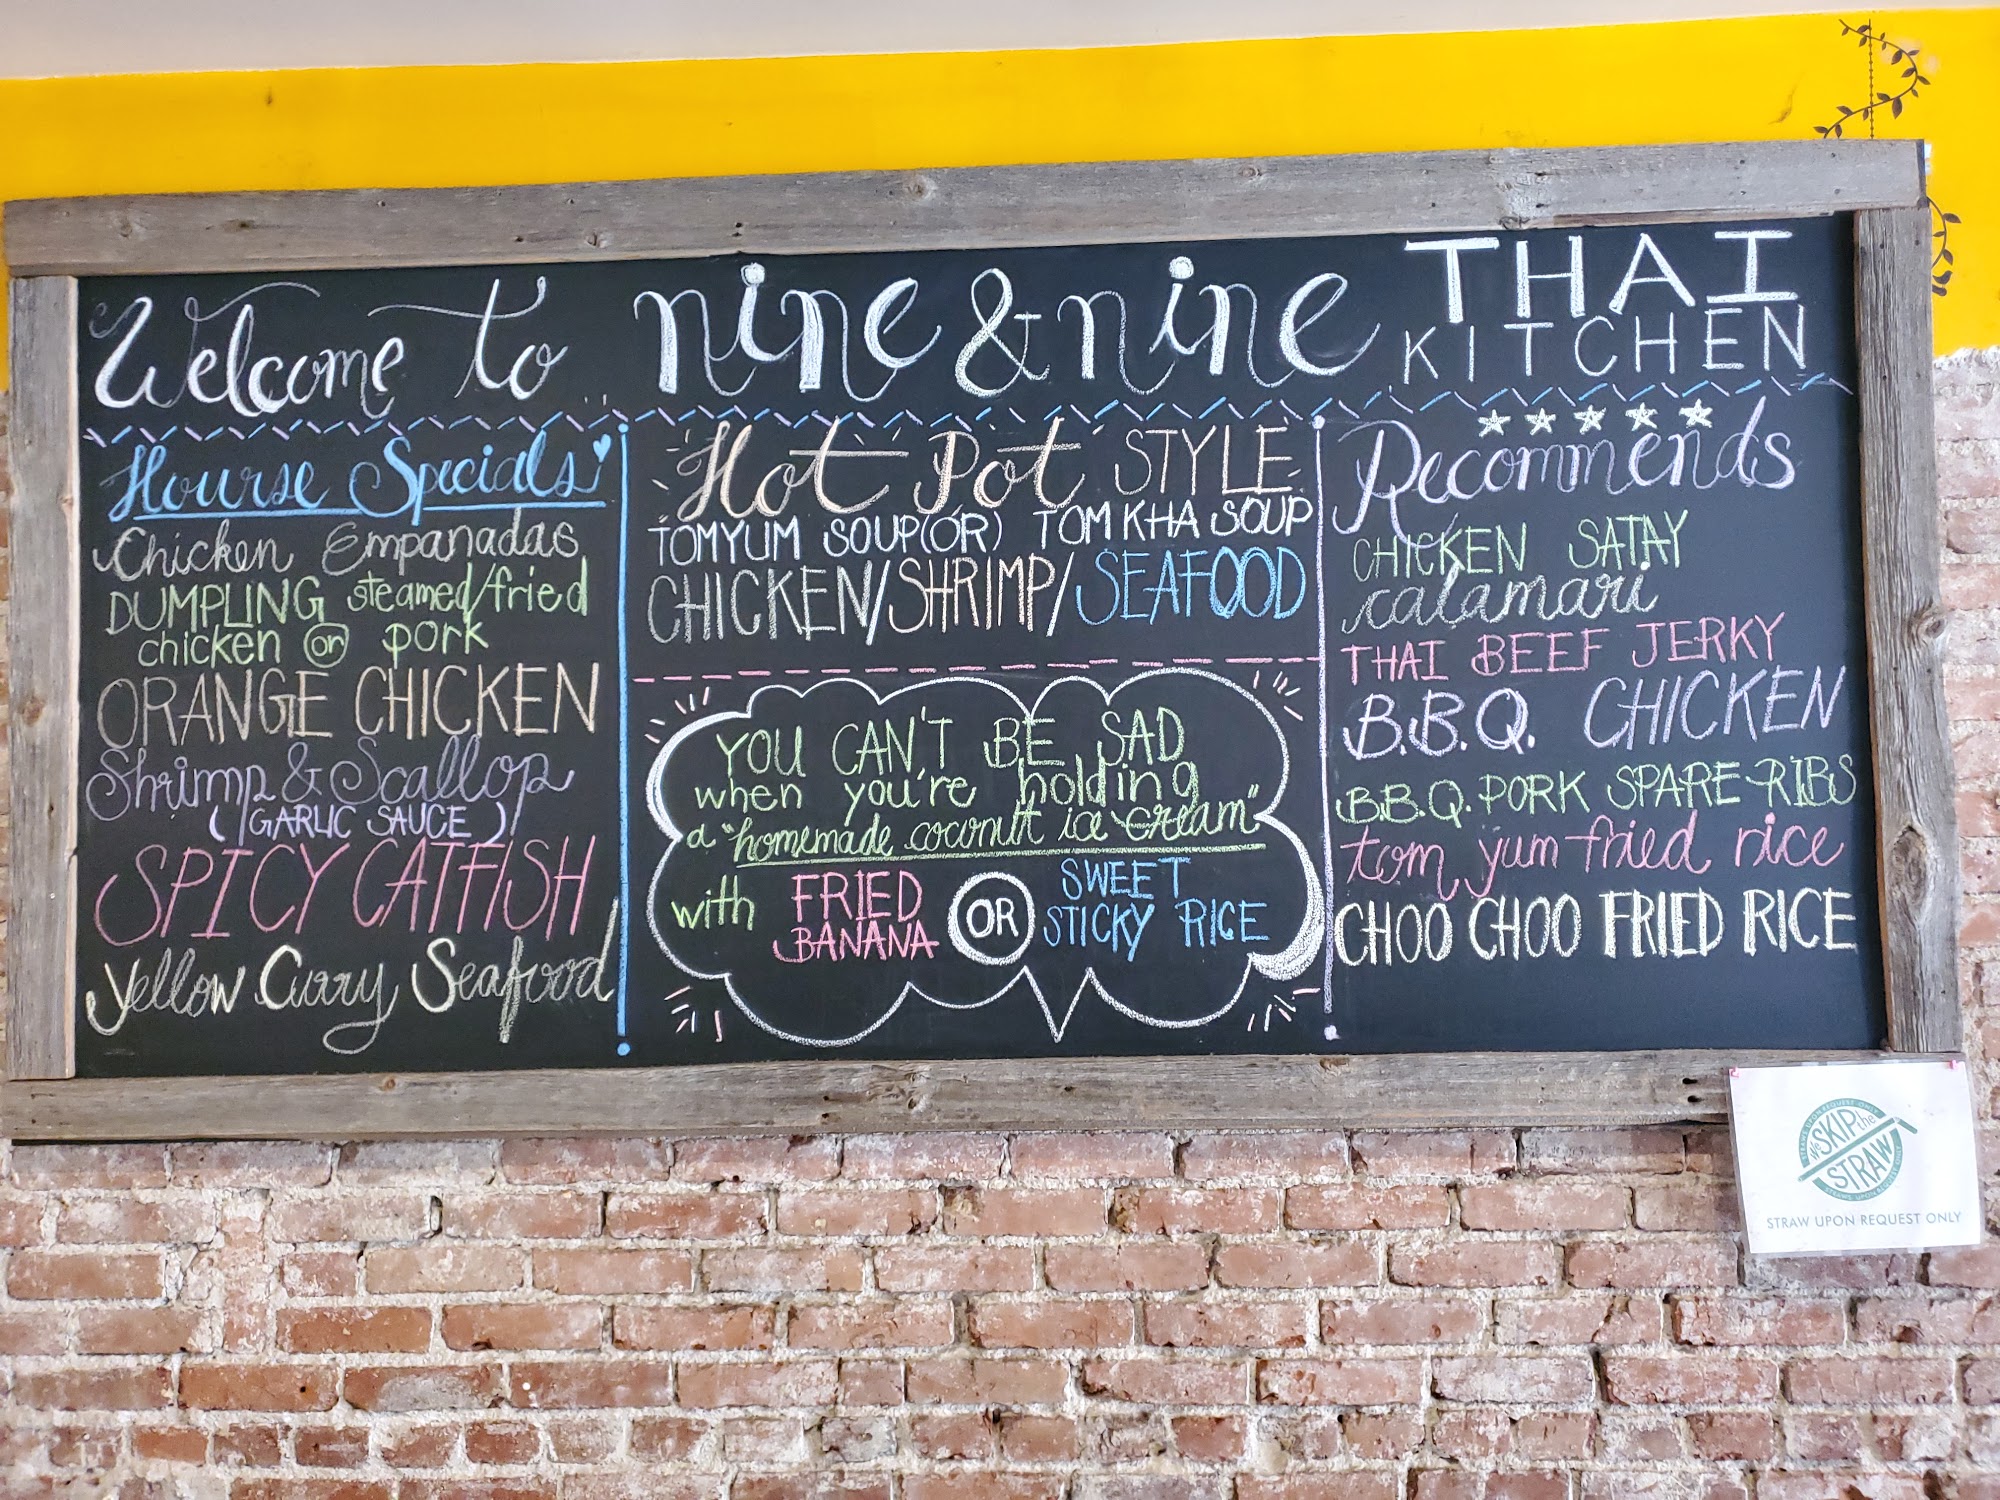 Welcome to nine & nine THAI
KITCHEN
Hourse Specials
Chicken Empanadas
DUMPLING steamed/fried
chicken or pork
ORANGE CHICKEN
Shrimp & Scallop
(GARLIC SAUCE)
SPICY CATFISH
Yellow Curry Seafood
Hot Pot STYLE
TOMYUM SOUP(OR) TOM KHA SOUP
CHICKEN/SHRIMP/SEAFOOD
YOU CAN'T BE SAD
when you're holding
a "homemade coconut ice cream"
with FRIED BANANA OR SWEET STICKY RICE
Recommends
CHICKEN SATAY
calamari
THAI BEEF JERKY
B.B.Q. CHICKEN
B.B.Q. PORK SPARE-RIBS
tom yum fried rice
CHOO CHOO FRIED RICE
STRAWS UPON REQUEST ONLY
We SKIP the
STRAW
STRAWS UPON REQUEST ONLY
STRAW UPON REQUEST ONLY